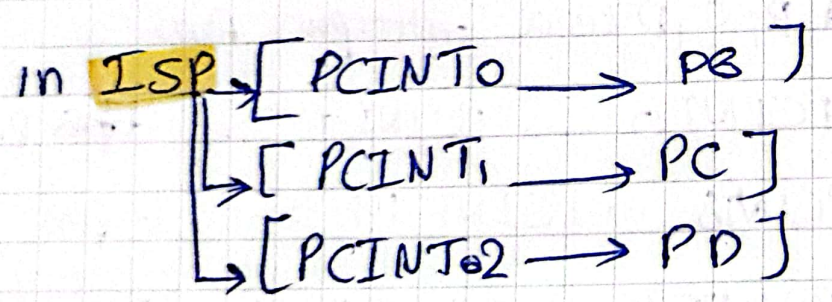 in ISP → [ PCINT0 → PB ]
→ [ PCINT1 → PC ]
→ [ PCINT2 → PD ]